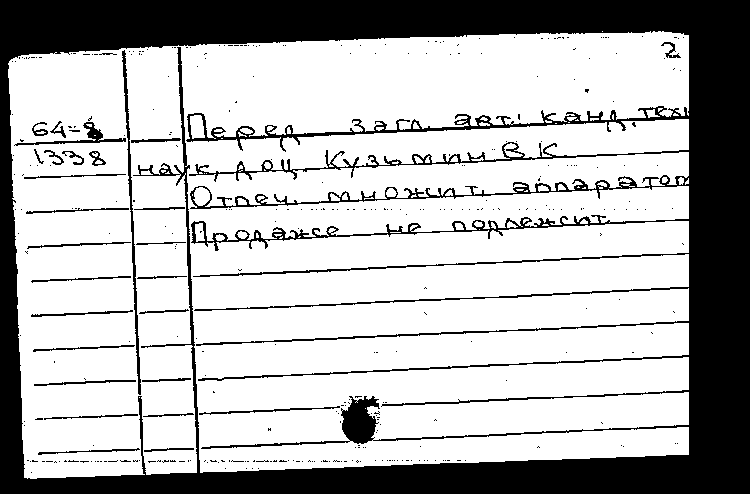 2
64=8
1338
Перед загл. авт.: канд. техн
наук, доц. Кузьмин В К
Отпеч. множит. аппаратом
Продаже не подлежит.